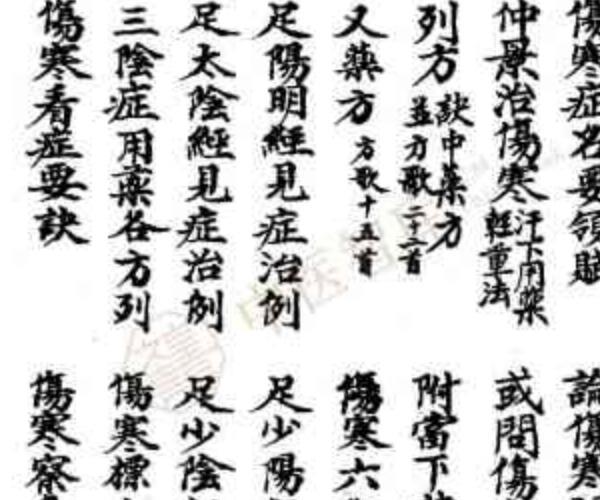 傷寒症名要領賦
仲景治傷寒汗下用藥輕重法
列方訣中藥方並方歌二十二首
又藥方方歌十五首
足陽明經見症治例
足太陰經見症治例
三陰症用藥各方列
傷寒看症要訣
論傷寒
或問傷
附當下
傷寒六
足少陽
足少陰
傷寒標
傷寒察